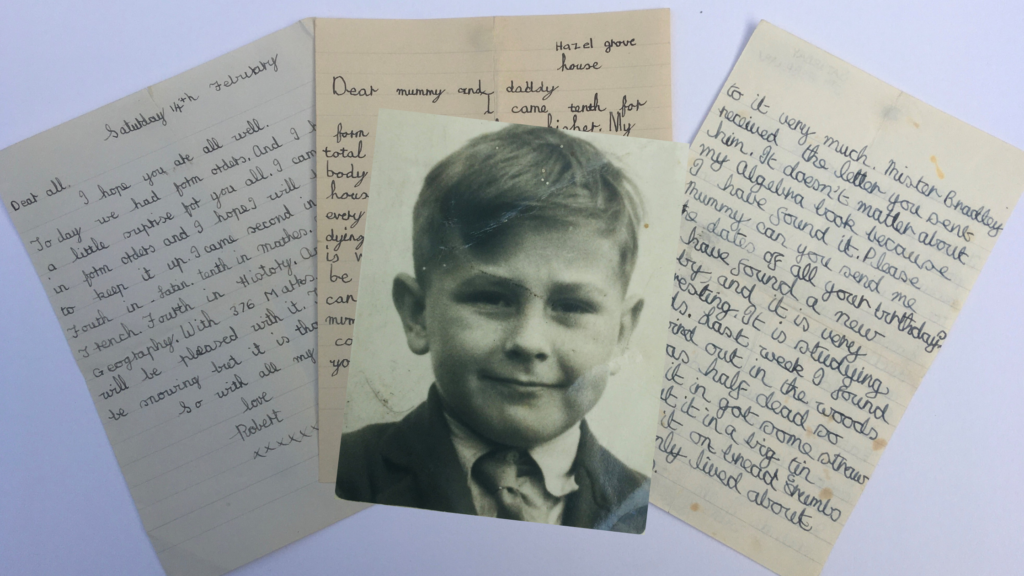 Saturday 14th Febuary
Dear all,
I hope you are all well.
To day we had form orders. And I
a little suprise for you all. I cam
in form orders and I hope I will
to keep it up. I came second in
Fourth in Latin. tenth in Mathes.
French Fourth in History.
Geography. With 376 Marks
will be pleased with it.
be snowing but it is tha
So with all my
love
Robert
xxxxxx
Hazel grove
house
Dear mummy and daddy
I came tenth for
form higher. My
total
body
hous
every
dying
is
be
can
mum
co
yo
to it very much. Mister Bradley
received the letter you sent
him. It doesn't matter about
my Algebra book because
I have found it. Please
Mummy can you send me
dates of all your birthdays
have found a new
by and it is very
resting. It is studying
ds. Last week I found
bird out in the woods
as half dead so
it in got some straw
t it in a big tin
it on bread crumbs
nly lived about